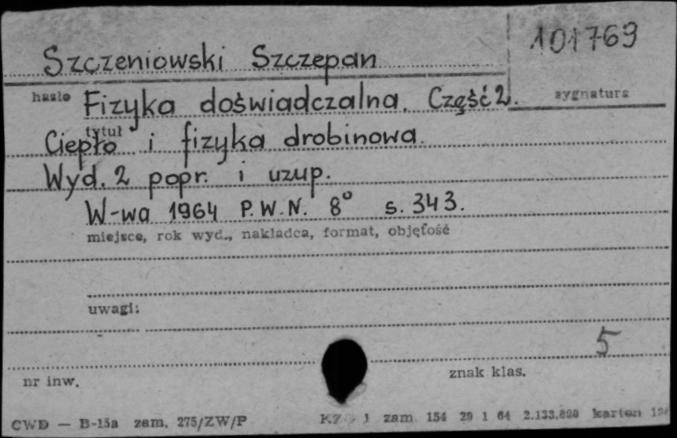 101769
Szczeniowski Szczepan
hasło sygnatura
Fizyka doświadczalna. Część 2.
tytuł
Ciepło i fizyka drobinowa.
Wyd. 2 popr. i uzup.
W-wa 1964 P.W.N. 8° s. 343.
miejsce, rok wyd., nakładca, format, objętość
uwagi:
5
nr inw. znak klas.
CWD — B-15a zam. 275/ZW/P zam 154 29 1 64 karton